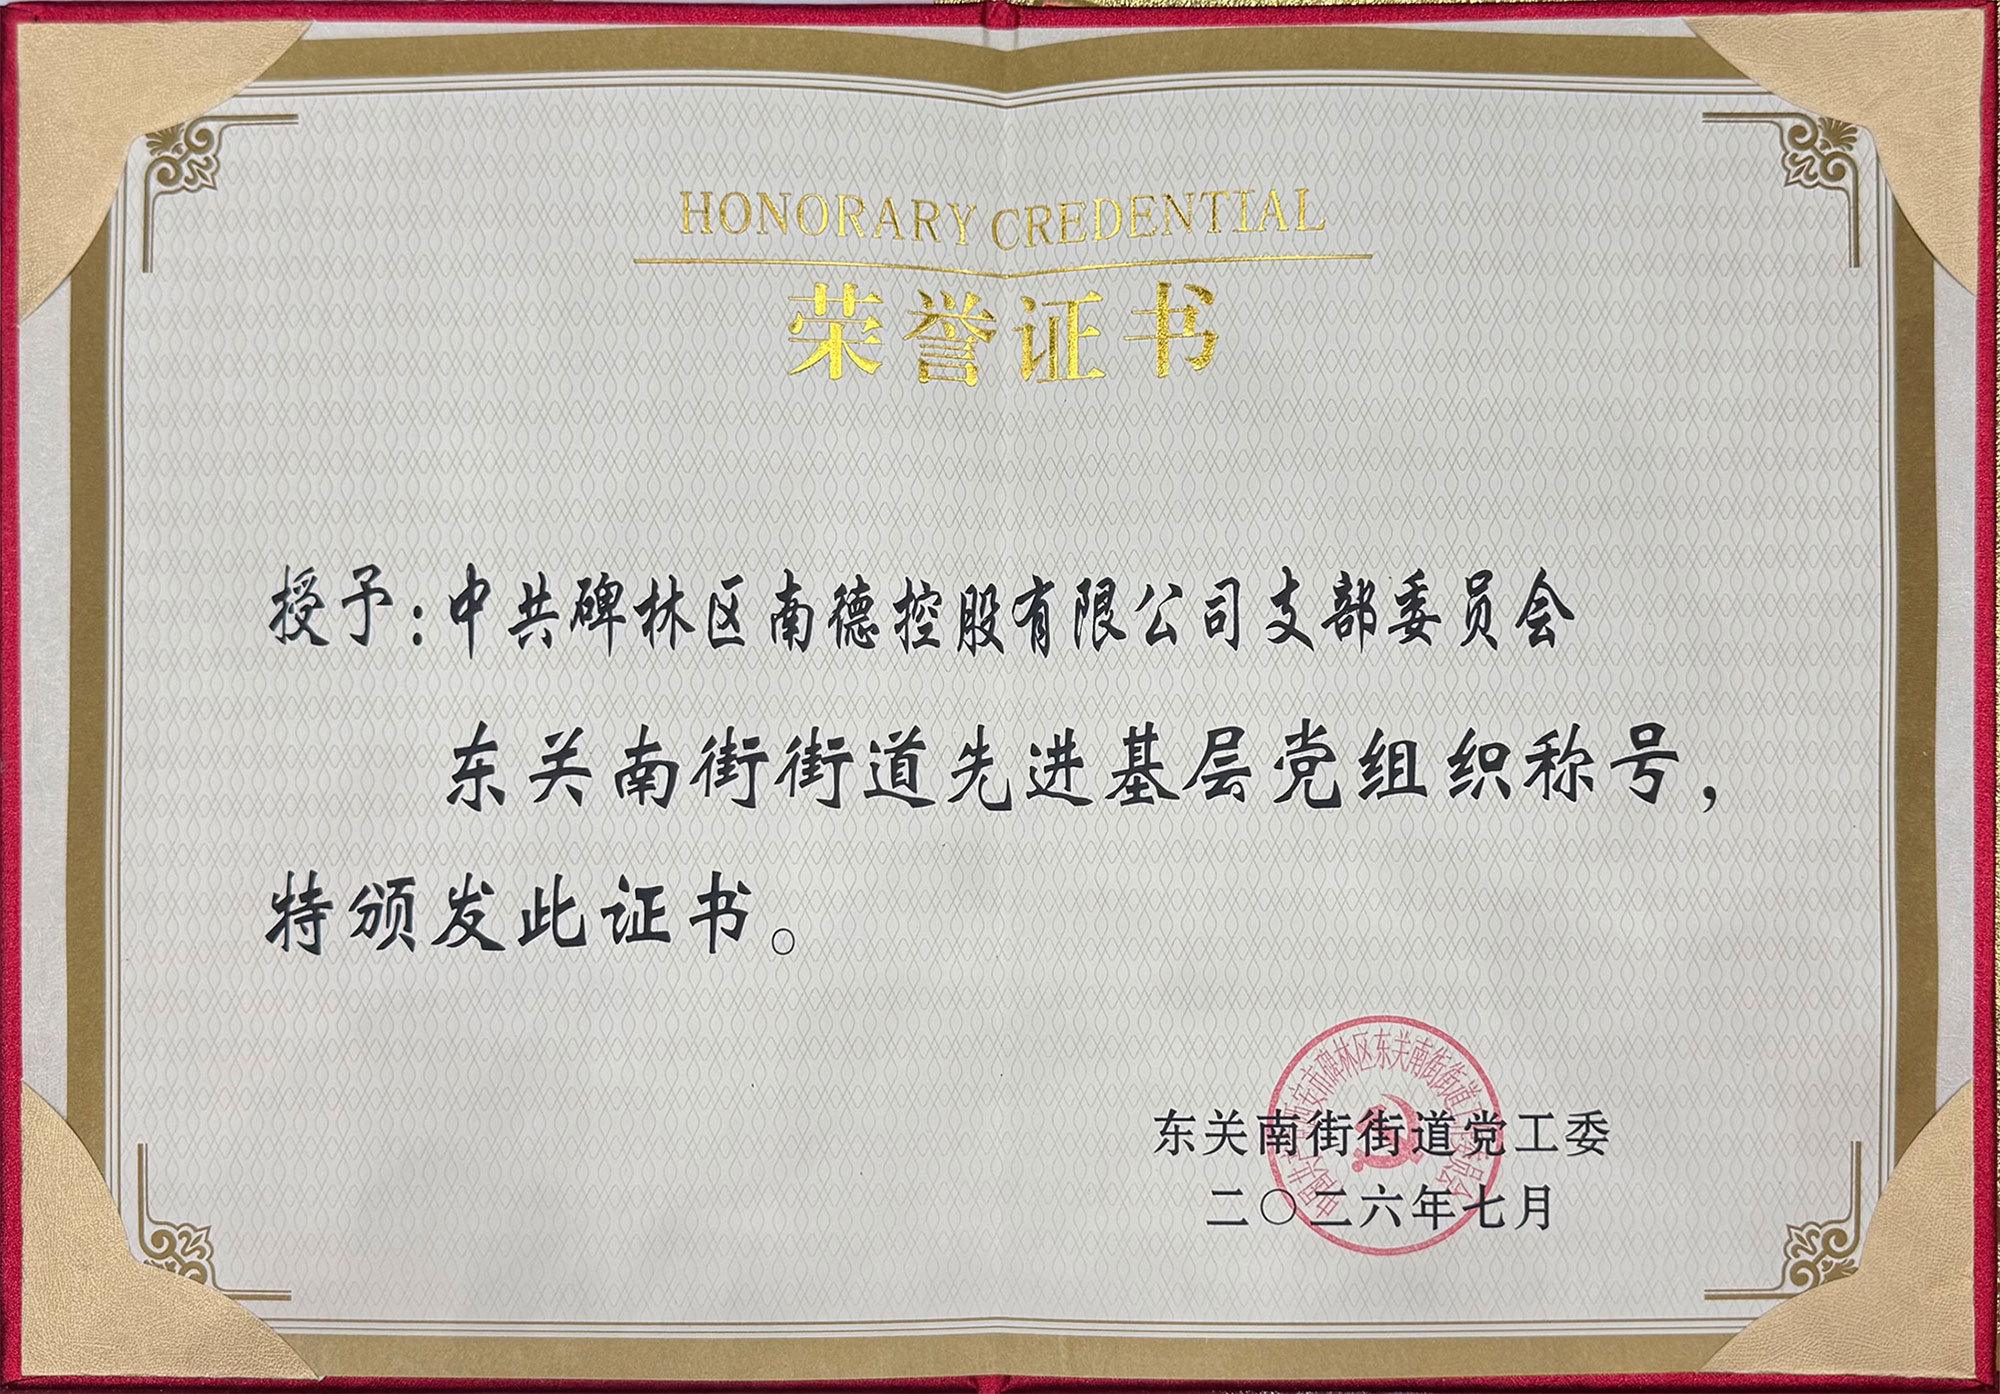 HONORARY CREDENTIAL
荣誉证书
授予：中共碑林区南德控股有限公司支部委员会
东关南街街道先进基层党组织称号，
特颁发此证书。
东关南街街道党工委
二〇二六年七月